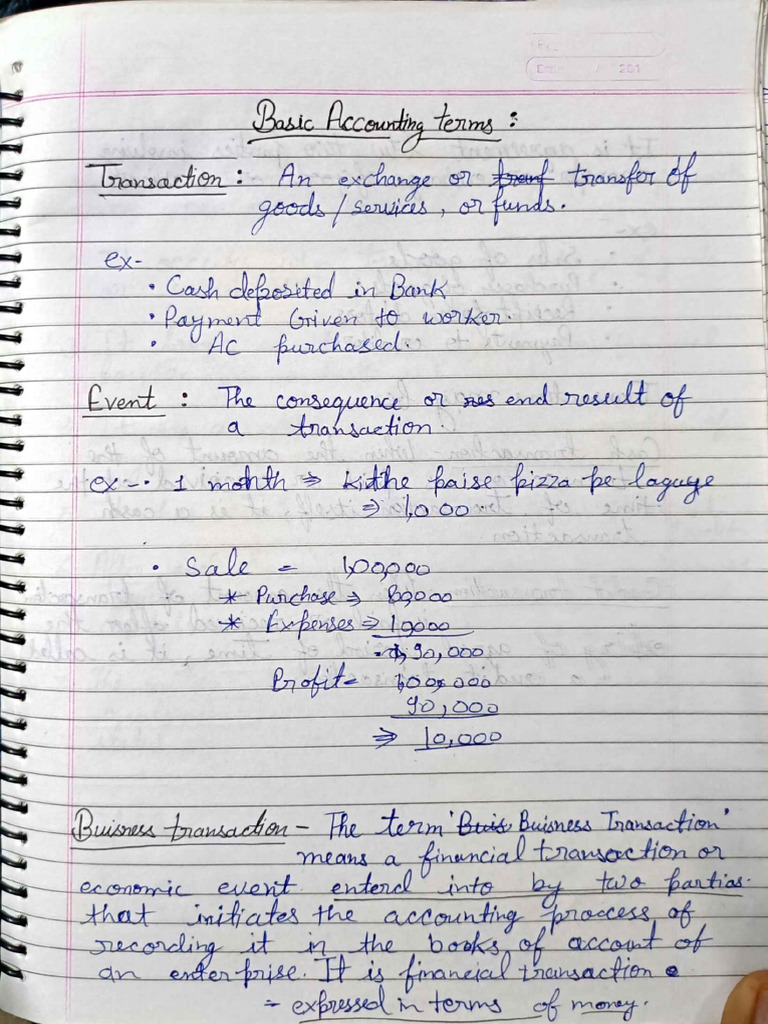 Basic Accounting terms :
Transaction : An exchange or tranf transfer of
goods / services, or funds.
ex-
• Cash deposited in Bank
• Payment Given to worker.
• AC purchased.
Event : The consequence or res end result of
a transaction.
ex-• 1 month ⇒ kitthe paise pizza pe laguye
⇒ 1,000
• Sale = 1,00,000
* Purchase ⇒ 80,000
* Expenses ⇒ 10000
90,000
Profit = 1,00,000
90,000
⇒ 10,000
Buisness transaction – The term 'Buis Buisness Transaction'
means a financial transaction or
economic event enterd into by two partias.
that initiates the accounting proccess of
recording it in the books of account of
an enterprise. It is financial transaction
= expressed in terms of money.